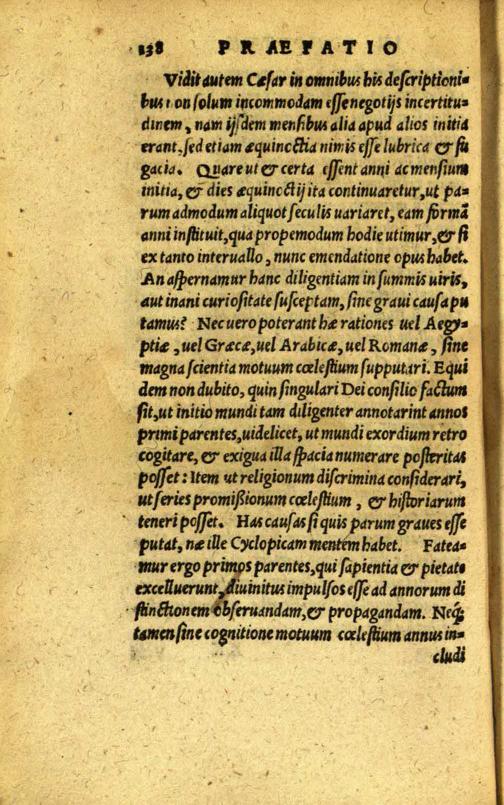 138 PRAEFATIO
Vidit autem Cæsar in omnibus his descriptioni-
bus non solum incommodam esse negotijs incertitu-
dinem, nam ijsdem mensibus alia apud alios initia
erant, sed etiam æquinoctia nimis esse lubrica & fu
gacia. Quare ut & certa essent anni ac mensium
initia, & dies æquinoctij ita continuaretur, ut pa-
rum admodum aliquot seculis uariaret, eam formā
anni instituit, qua propemodum hodie utimur, & si
ex tanto interuallo, nunc emendatione opus habet.
An aspernamur hanc diligentiam in summis uiris,
aut inani curiositate susceptam, sine graui causa pu
tamus? Nec uero poterant hæ rationes uel Aegy-
ptiæ, uel Græcæ, uel Arabicæ, uel Romanæ, sine
magna scientia motuum cœlestium supputari. Equi
dem non dubito, quin singulari Dei consilio factum
sit, ut initio mundi tam diligenter annotarint annos
primi parentes, uidelicet, ut mundi exordium retro
cogitare, & exigua illa spacia numerare posteritas
posset: Item ut religionum discrimina considerari,
ut series promißionum cœlestium, & historiarum
teneri posset. Has causas si quis parum graues esse
putat, næ ille Cyclopicam mentem habet. Fatea-
mur ergo primos parentes, qui sapientia & pietate
excelluerunt, diuinitus impulsos esse ad annorum di
stinctionem obseruandam, & propagandam. Neq;
tamen sine cognitione motuum cœlestium annus in-
cludi